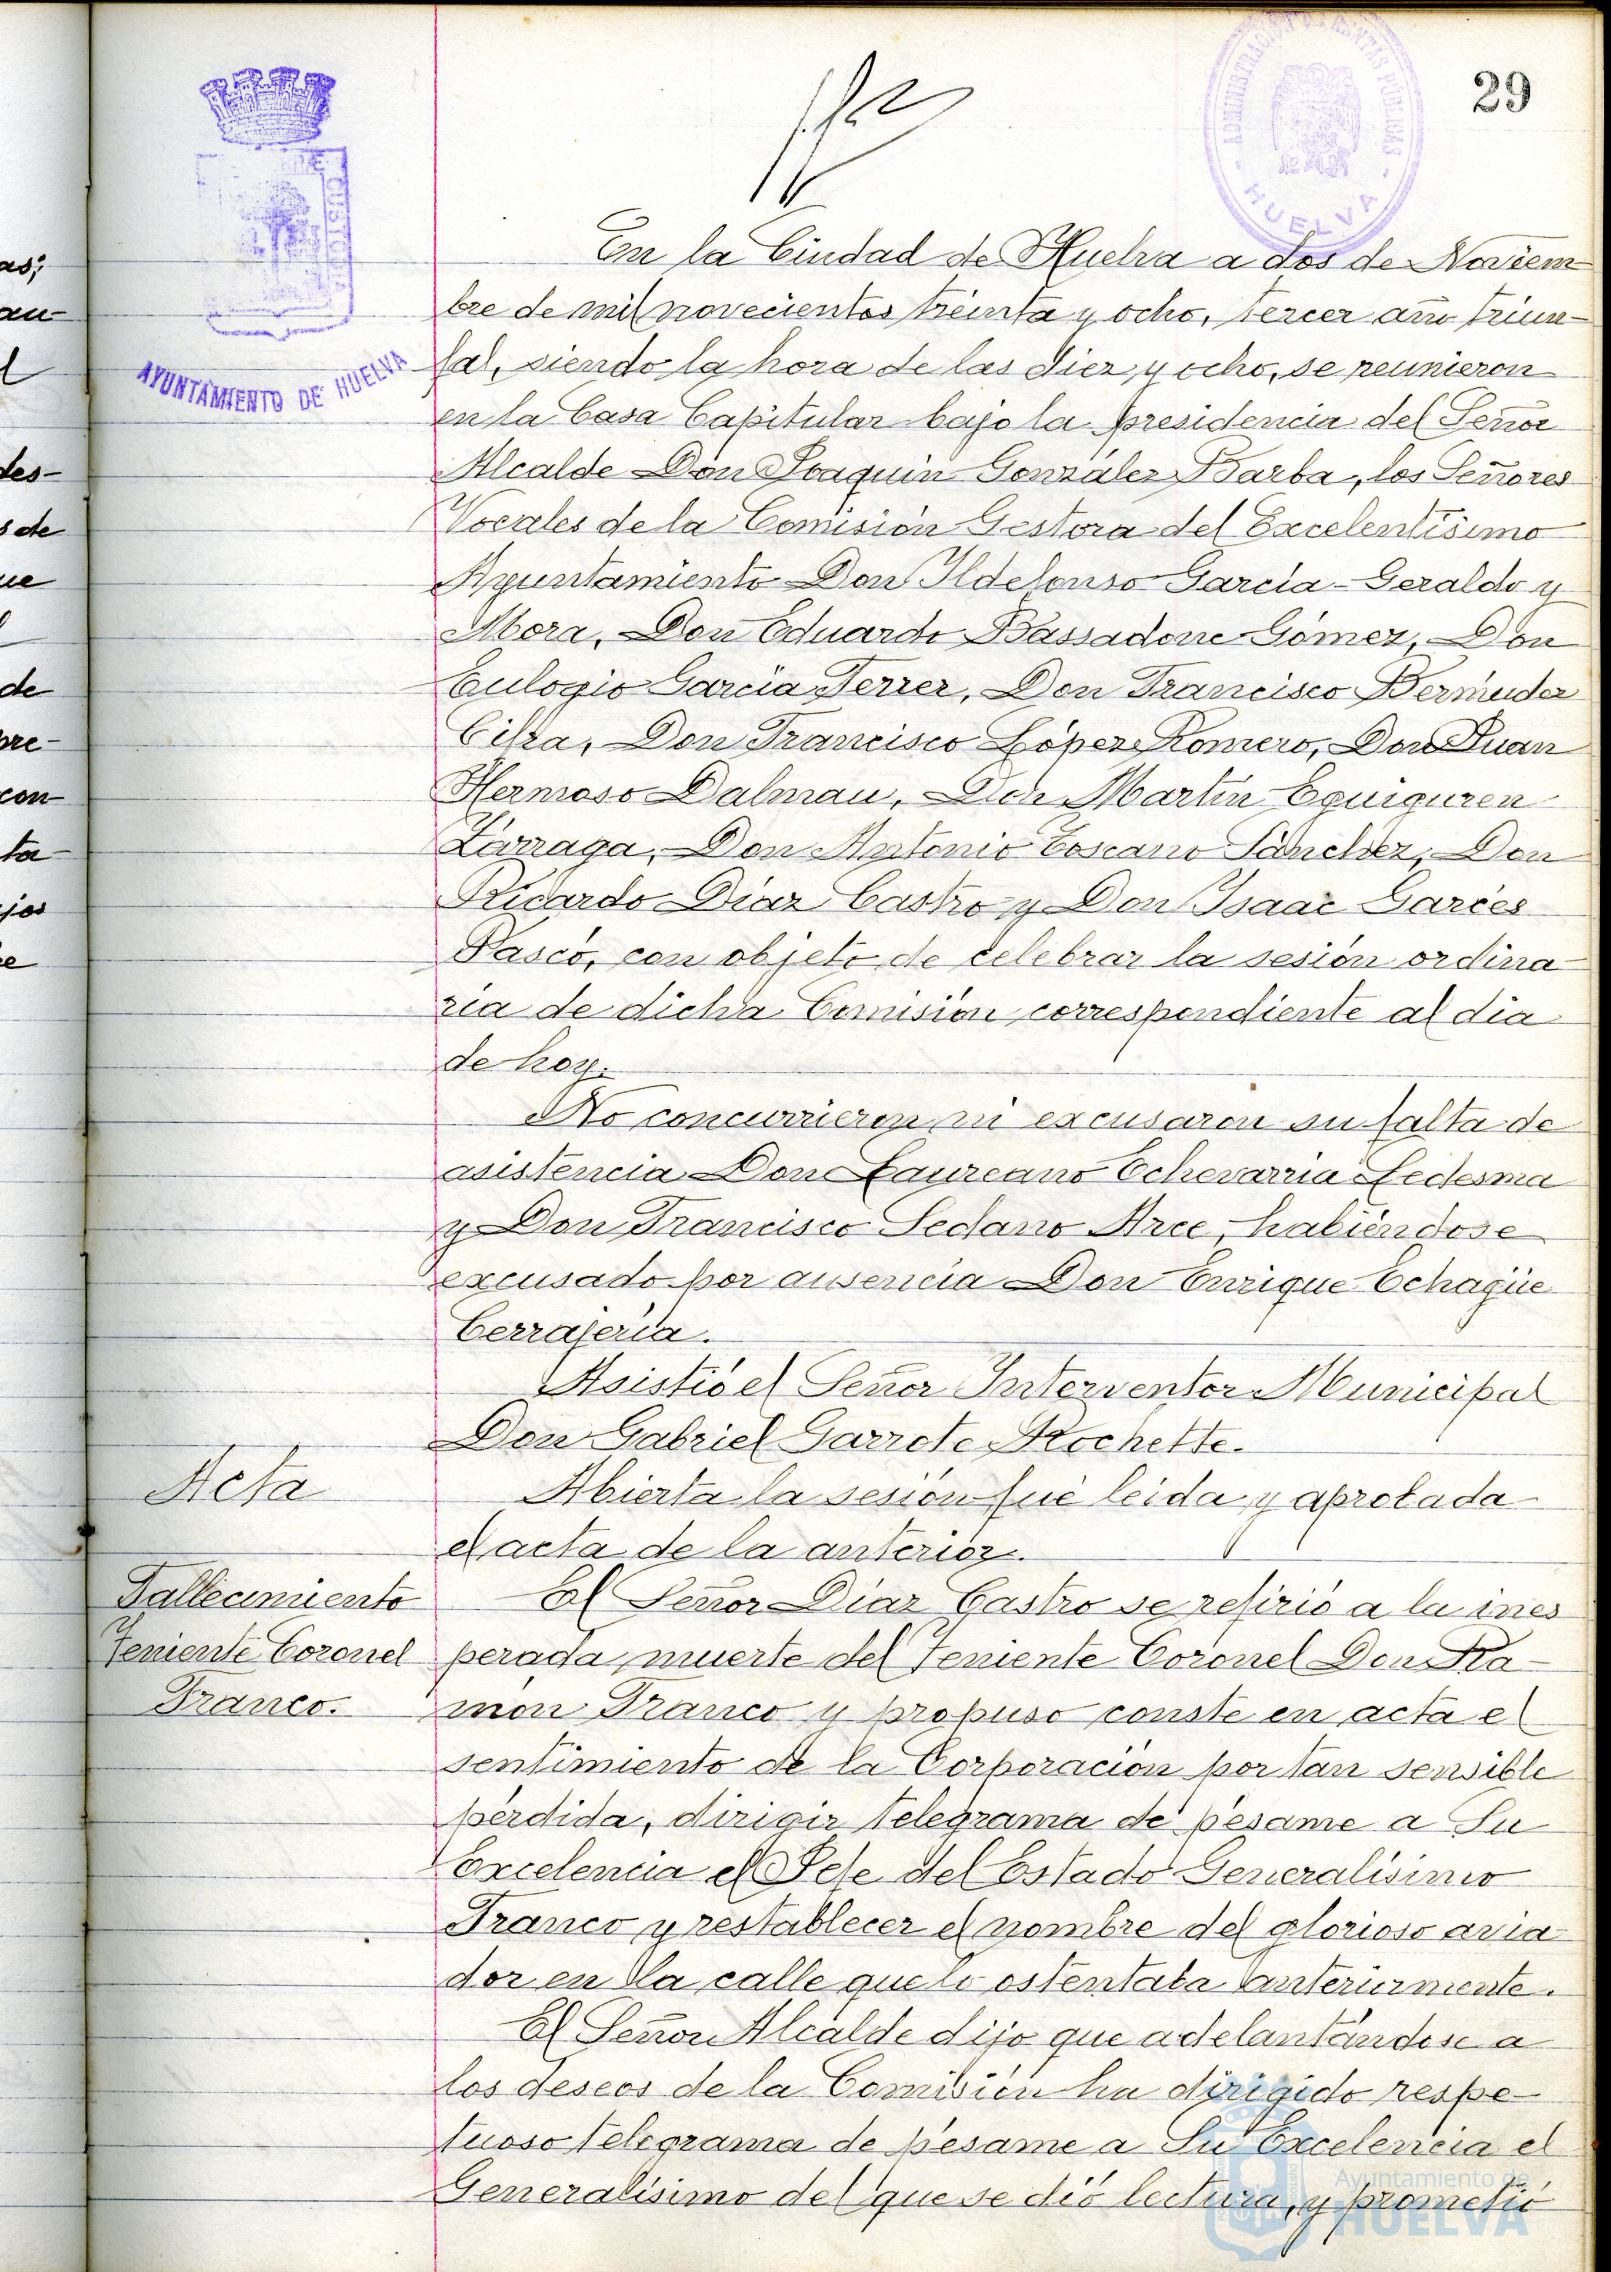 29
ADMINISTRACIÓN DE RENTAS PUBLICAS
- HUELVA -
AYUNTAMIENTO DE HUELVA
En la Ciudad de Huelva a dos de Noviem-
bre de mil novecientos treinta y ocho, tercer año triun-
fal, siendo la hora de las diez y ocho, se reunieron
en la Casa Capitular bajo la presidencia del Señor
Alcalde Don Joaquin González Barba, los Señores
Vocales de la Comisión Gestora del Excelentísimo
Ayuntamiento Don Ildefonso García-Geraldo y
Mora, Don Eduardo Bassadone Gómez, Don
Eulogio García Ferrer, Don Francisco Bermúdez
Cifra, Don Francisco López Romero, Don Juan
Hermoso Dalmau, Don Martín Eguiguren
Zárraga, Don Antonio Toscano Sánchez, Don
Ricardo Díaz Castro y Don Isaac Garcés
Pascó, con objeto de celebrar la sesión ordina-
ria de dicha Comisión correspondiente al dia
de hoy.
No concurrieron ni excusaron su falta de
asistencia Don Laureano Echevarria Ledesma
y Don Francisco Sedano Arce, habiéndose
excusado por ausencia Don Enrique Echagüe
Cerrajería.
Asistió el Señor Interventor Municipal
Don Gabriel Garrote Rochette.
Acta
Abierta la sesión fué leida y aprobada
el acta de la anterior.
Fallecimiento
Teniente Coronel
Franco.
El Señor Díaz Castro se refirió a la ines
perada muerte del Teniente Coronel Don Ra-
món Franco y propuso conste en acta el
sentimiento de la Corporación por tan sensible
pérdida, dirigir telegrama de pésame a Su
Excelencia el Jefe del Estado Generalísimo
Franco y restablecer el nombre del glorioso avia-
dor en la calle que lo ostentaba anteriormente.
El Señor Alcalde dijo que adelantándose a
los deseos de la Comisión ha dirigido respe-
tuoso telegrama de pésame a Su Excelencia el
Generalísimo del que se dió lectura, y prometió
Ayuntamiento de
HUELVA
as;
au-
des-
s de
ue
de
bre-
con-
ta-
jos